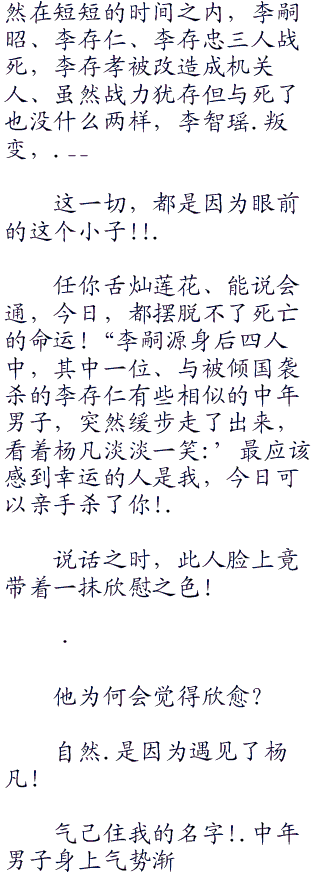 然在短短的时间之内，李嗣
昭、李存仁、李存忠三人战
死，李存孝被改造成机关
人、虽然战力犹存但与死了
也没什么两样，李智瑶.叛
变，.--
这一切，都是因为眼前
的这个小子!!.
任你舌灿莲花、能说会
通，今日，都摆脱不了死亡
的命运！“李嗣源身后四人
中，其中一位、与被倾国袭
杀的李存仁有些相似的中年
男子，突然缓步走了出来，
看着杨凡淡淡一笑:’最应该
感到幸运的人是我，今日可
以亲手杀了你!.
说话之时，此人脸上竟
带着一抹欣慰之色！
.
他为何会觉得欣愈？
自然.是因为遇见了杨
凡！
气己住我的名字!.中年
男子身上气势渐